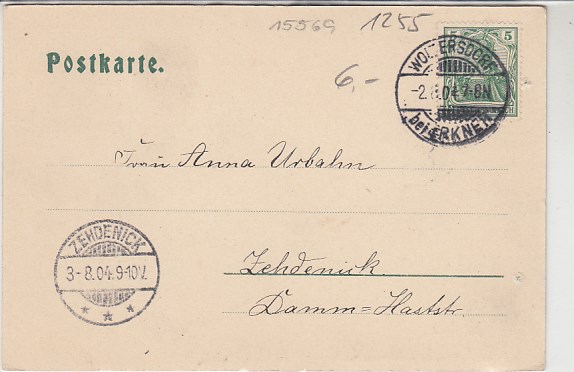 15569 1255
6,-
Postkarte.
5 5
WOLTERSDORF
-2.8.04.7-8N
bei ERKNER
Frau Anna Urbahn
Zehdenick
Damm=Haststr.
ZEHDENICK
3-8.04.9-10V.